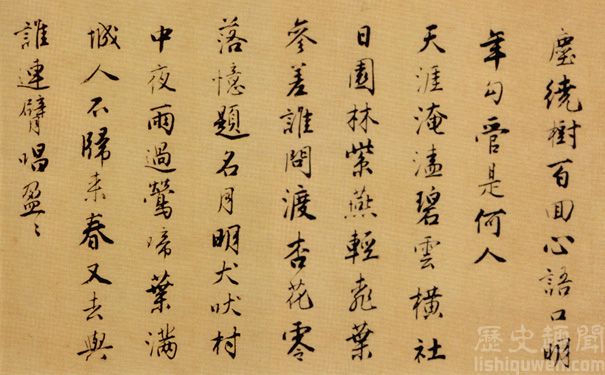 塵繞樹百回心語口明
年勾管是何人
天涯淹溘碧雲橫社
日園林紫燕輕桃葉
參差誰問渡杏花零
落憶題名月明犬吠村
中夜雨過鶯啼葉滿
城人不歸来春又去與
誰連臂唱盈〻
歷史趣聞
lishiquwen.com